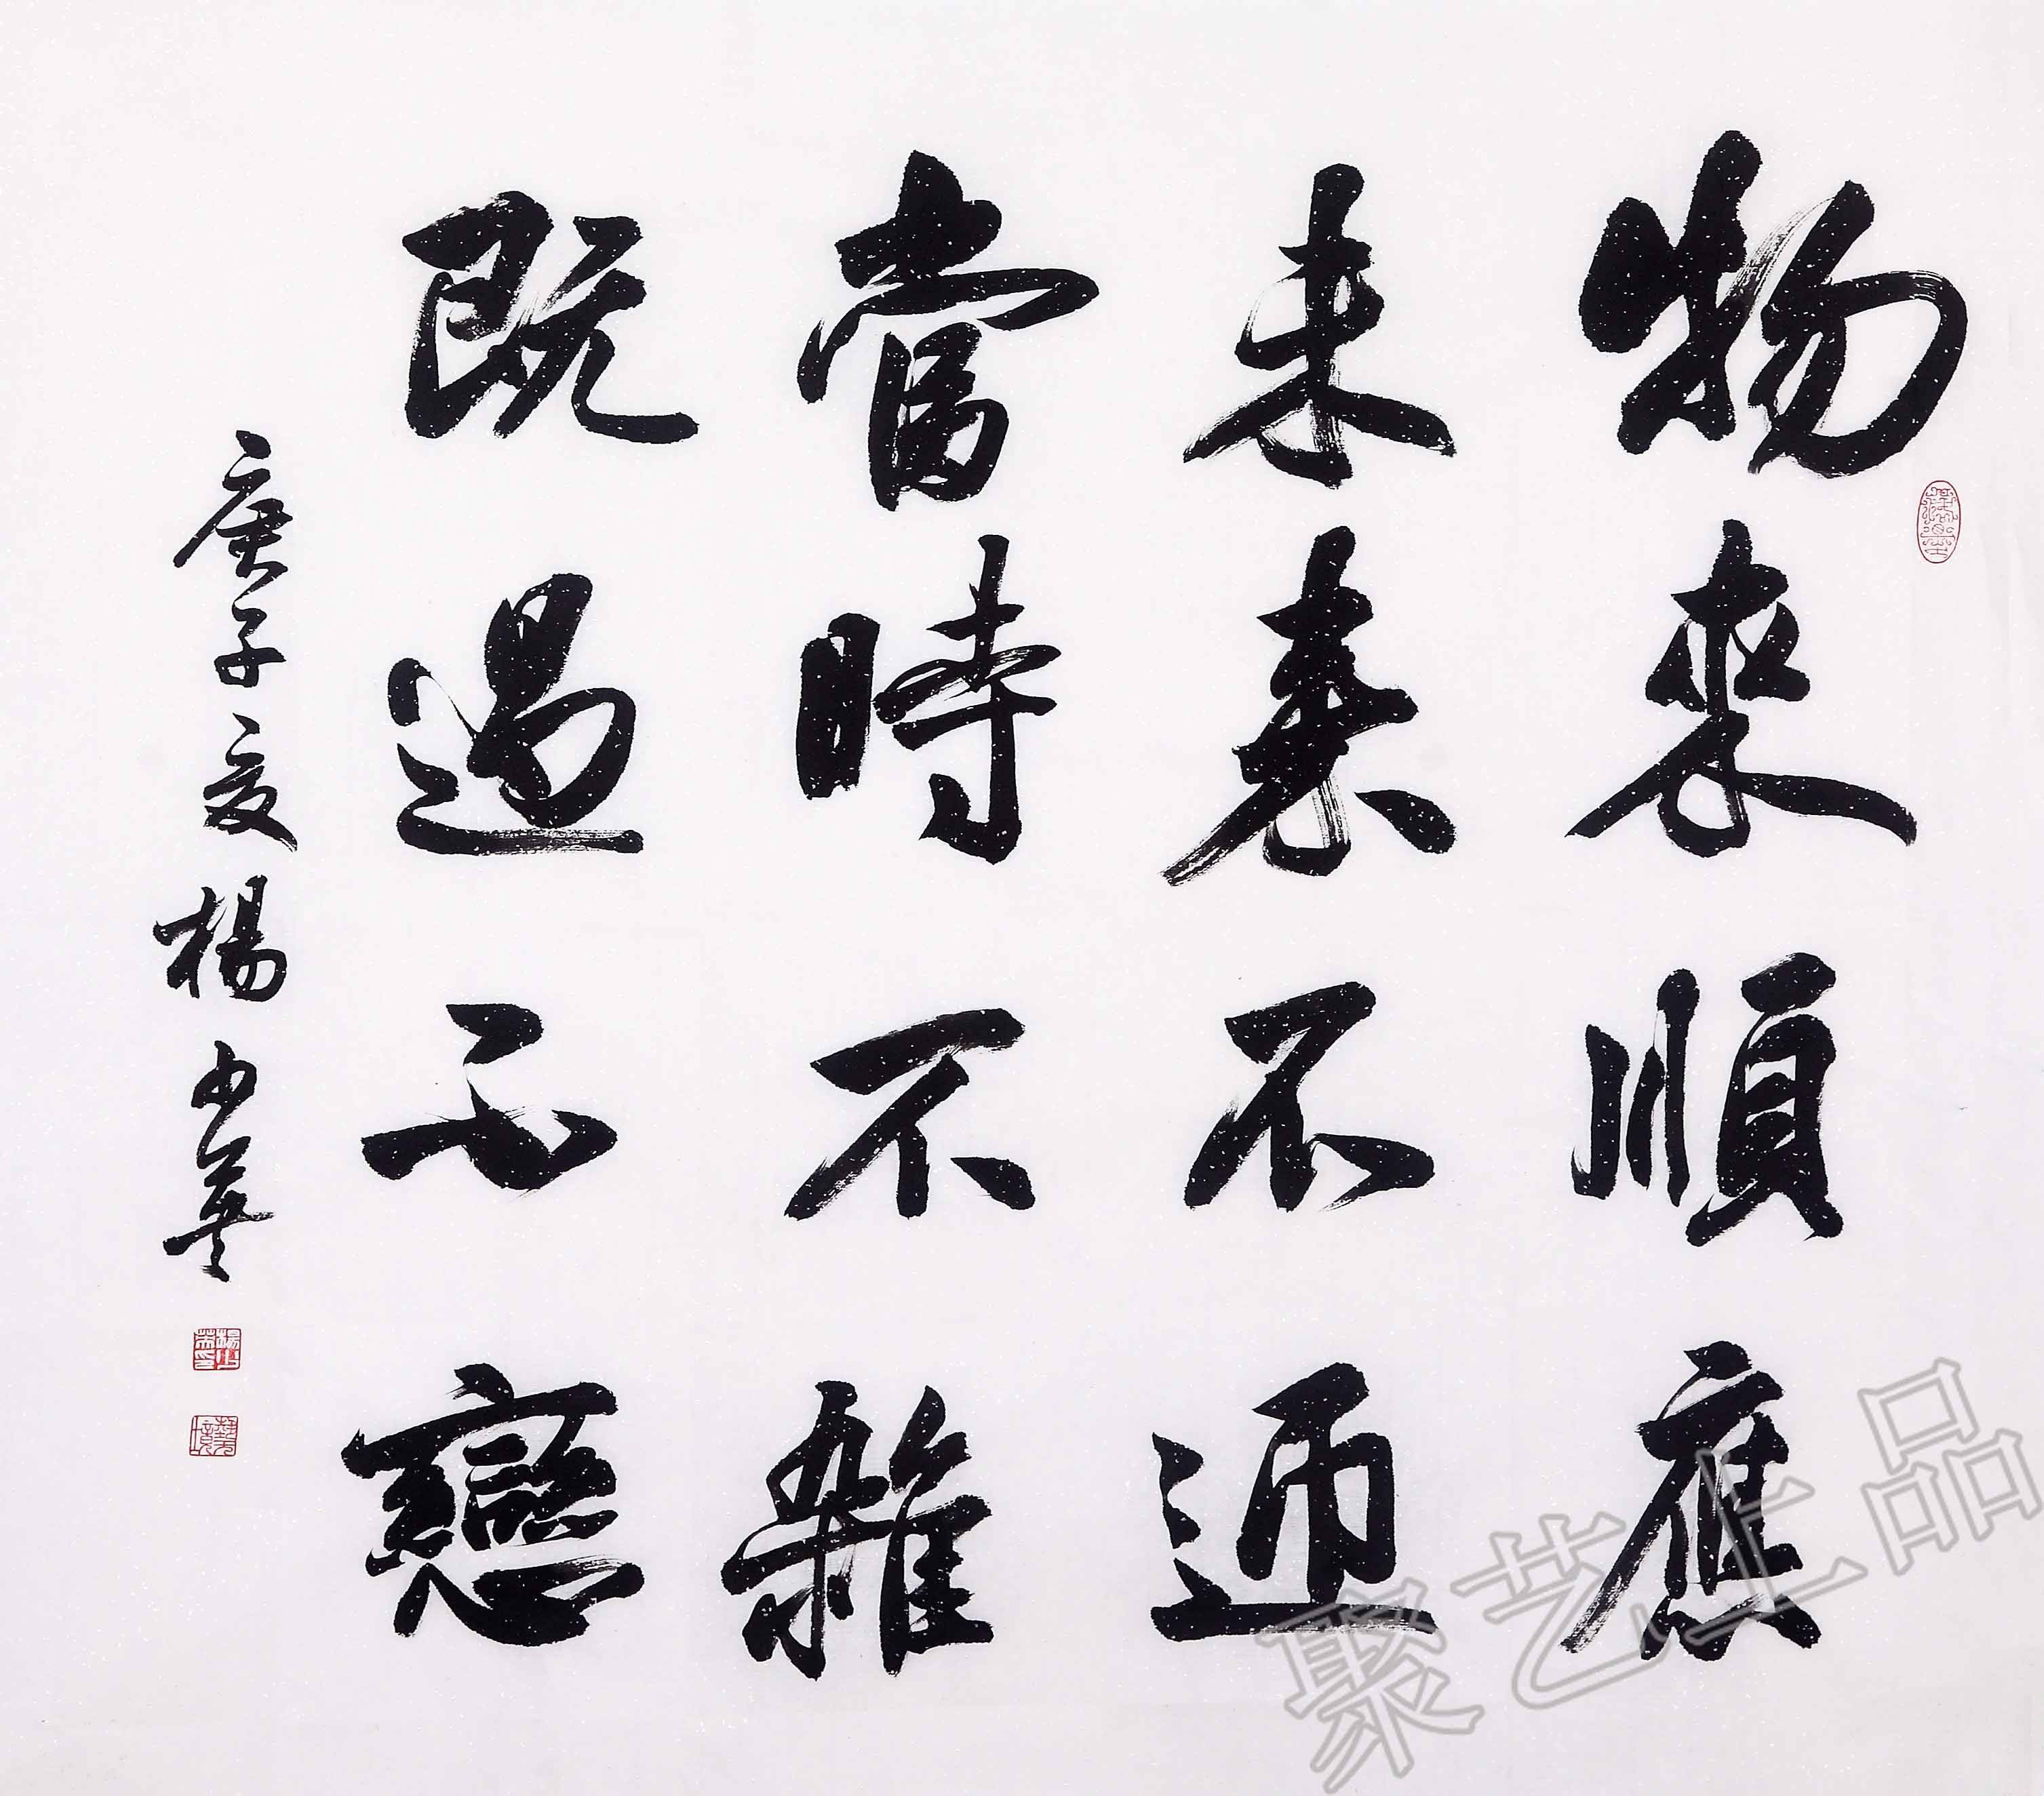 物來順應
未来不迎
當時不雜
既過不戀
庚子夏楊少
聚艺上品